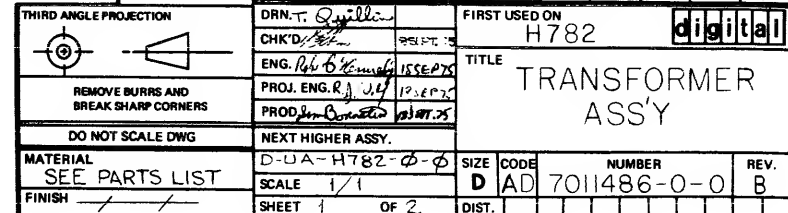 THIRD ANGLE PROJECTION
REMOVE BURRS AND
BREAK SHARP CORNERS
DO NOT SCALE DWG
MATERIAL
SEE PARTS LIST
FINISH
DRN. T. Quillin
CHK'D
ENG. 15SEP75
PROJ. ENG. R.J.
PROD
NEXT HIGHER ASSY.
D-UA-H782-Ø-Ø
SCALE 1/1
SHEET 1 OF 2
FIRST USED ON
H782
digital
TITLE
TRANSFORMER
ASS'Y
SIZE CODE NUMBER REV.
D AD 7011486-0-0 B
DIST.